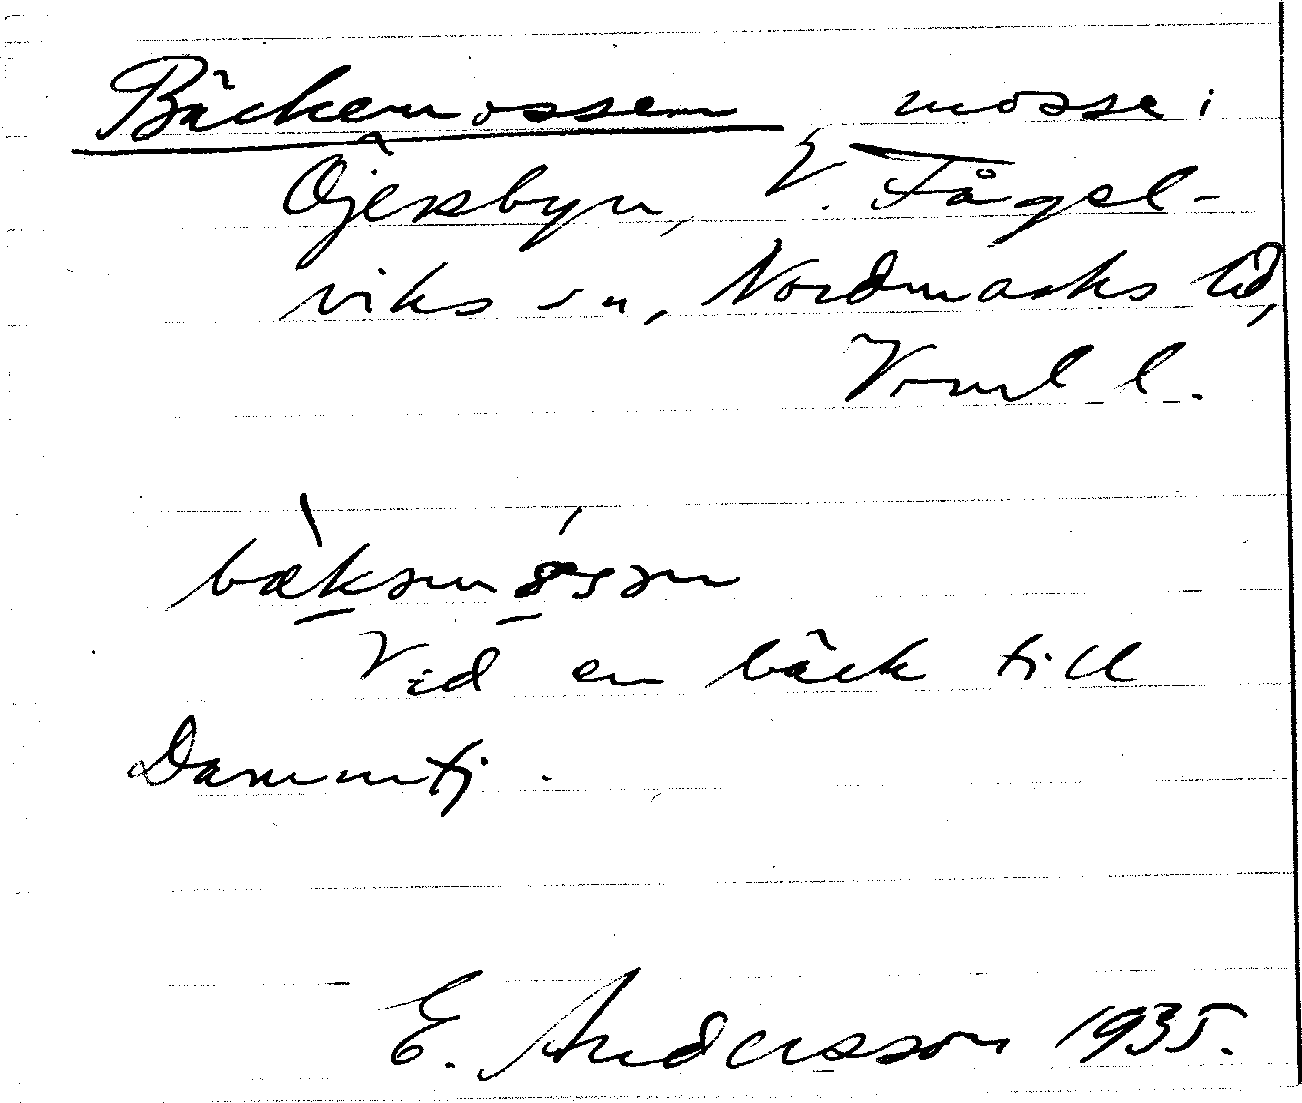 Bäckemossen mosse i
Öjersbyn, V. Fågel-
viks sn, Nordmarks hd,
Vrml l.
bæ̀ksmósən
Vid en bäck till
Dammtj.
E. Andersson 1935.